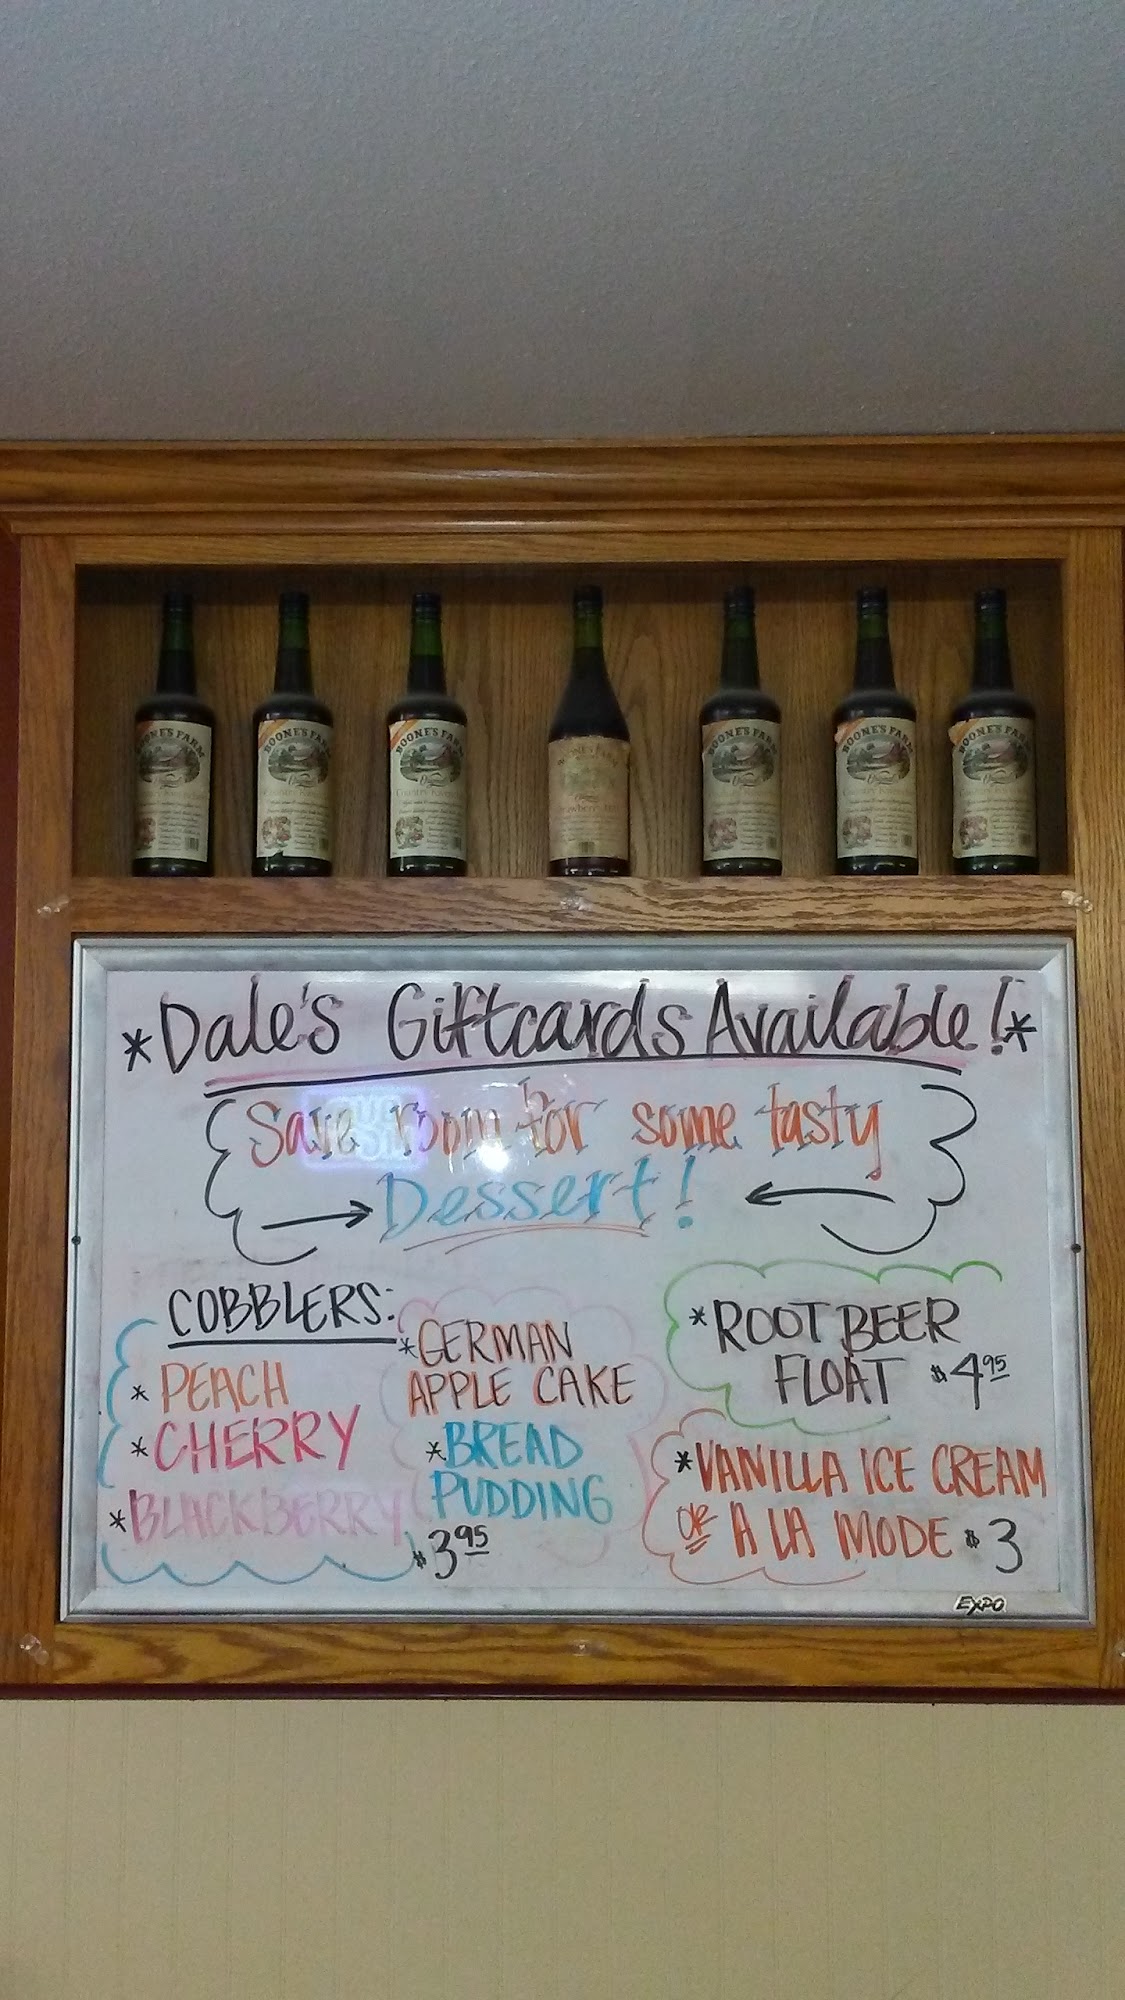 BOONE'S FARM
BOONE'S FARM
BOONE'S FARM
BOONE'S FARM
BOONE'S FARM
BOONE'S FARM
BOONE'S FARM
*Dale's Giftcards Available!*
Save room for some tasty
Dessert!
COBBLERS:
* PEACH
*CHERRY
*BLACKBERRY
*GERMAN
APPLE CAKE
*BREAD
PUDDING
$3.95
*ROOT BEER
FLOAT $4.95
*VANILLA ICE CREAM
OR A LA MODE $3
EXPO